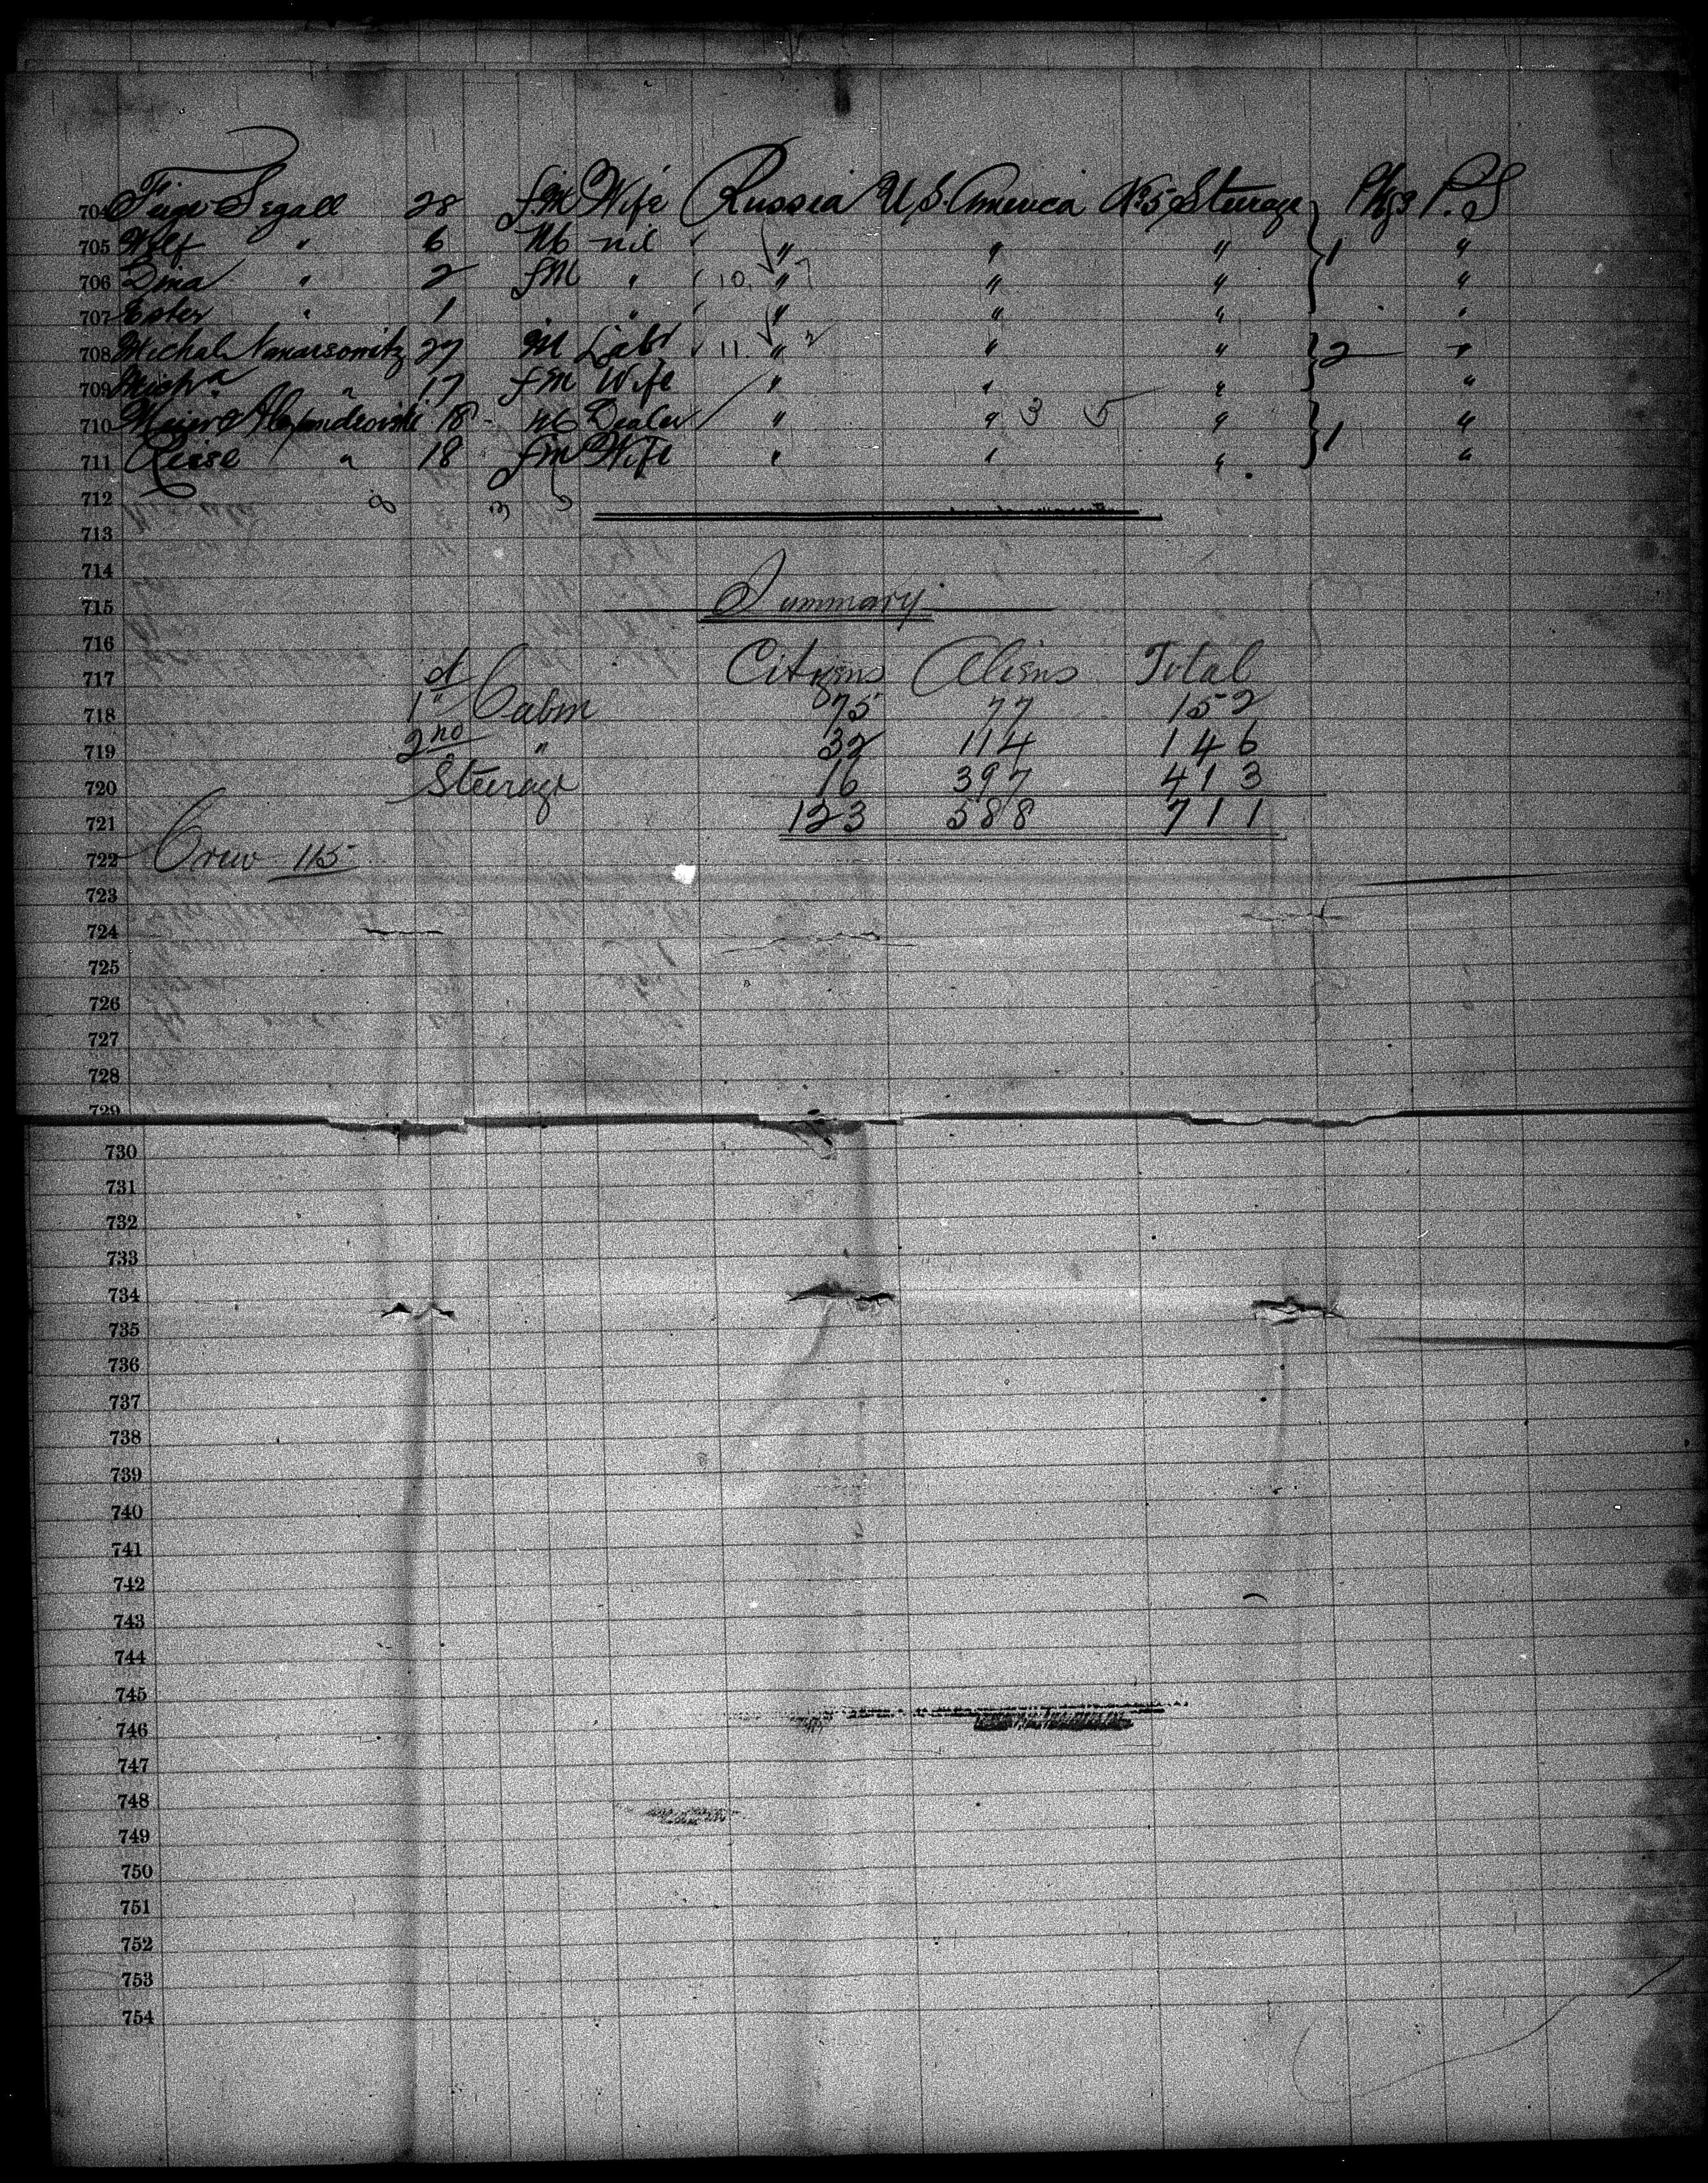 704 Feige Segall 28 fm Wife Russia U.S. America No 5 Steerage } Pkgs P.S
705 Wolf " 6 M nil " " " 1 "
706 Dina " 2 fM " 10 " 7 " " "
707 Ester " 1 " " " " " "
708 Michal 27 M Labr 11 " 2 " " } 2 "
709 " 17 fm Wife " " " "
710 Meier 18 M Dealer " " 3 5 " } 1 "
711 Reise " 18 fm Wife " " " "
712 8 3 5
713
714
715 Summary
716
717 Citizens Aliens Total
718 1st Cabin 75 77 152
719 2nd " 32 114 146
720 Steerage 16 397 413
721 123 588 711
722 Crew 115
723
724
725
726
727
728
729
730
731
732
733
734
735
736
737
738
739
740
741
742
743
744
745
746
747
748
749
750
751
752
753
754